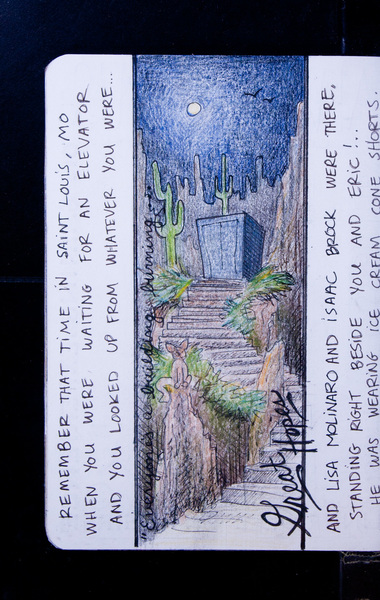 REMEMBER THAT TIME IN SAINT LOUIS, MO
WHEN YOU WERE WAITING FOR AN ELEVATOR
AND YOU LOOKED UP FROM WHATEVER YOU WERE...
"everyone's a building burning...
Great Hopes
AND LISA MOLINARO AND ISAAC BROCK WERE THERE,
STANDING RIGHT BESIDE YOU AND ERIC!...
HE WAS WEARING ICE CREAM CONE SHORTS.